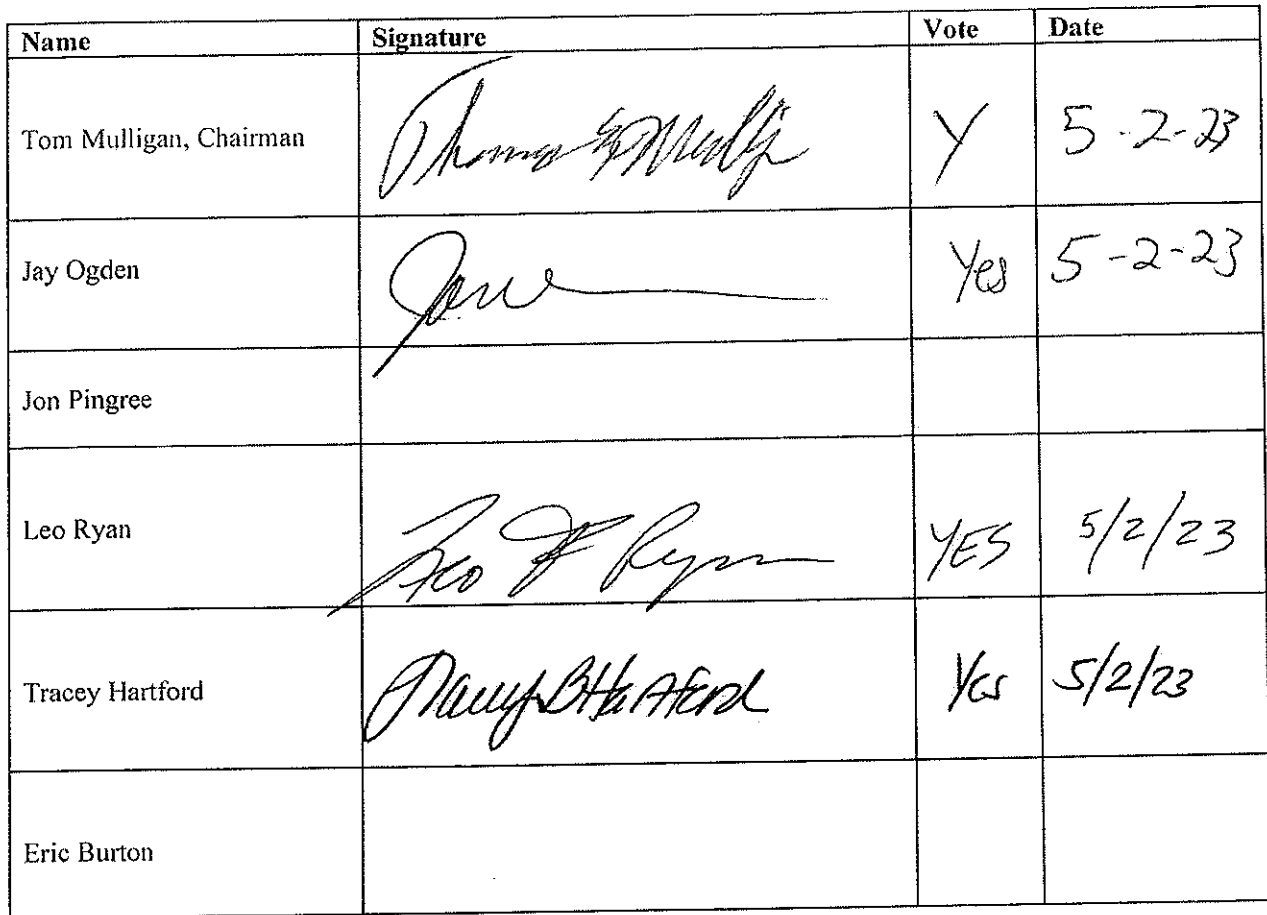 Name Signature Vote Date
Tom Mulligan, Chairman Y 5-2-23
Jay Ogden Yes 5-2-23
Jon Pingree
Leo Ryan Leo F Ryan YES 5/2/23
Tracey Hartford Tracey B Hartford Yes 5/2/23
Eric Burton